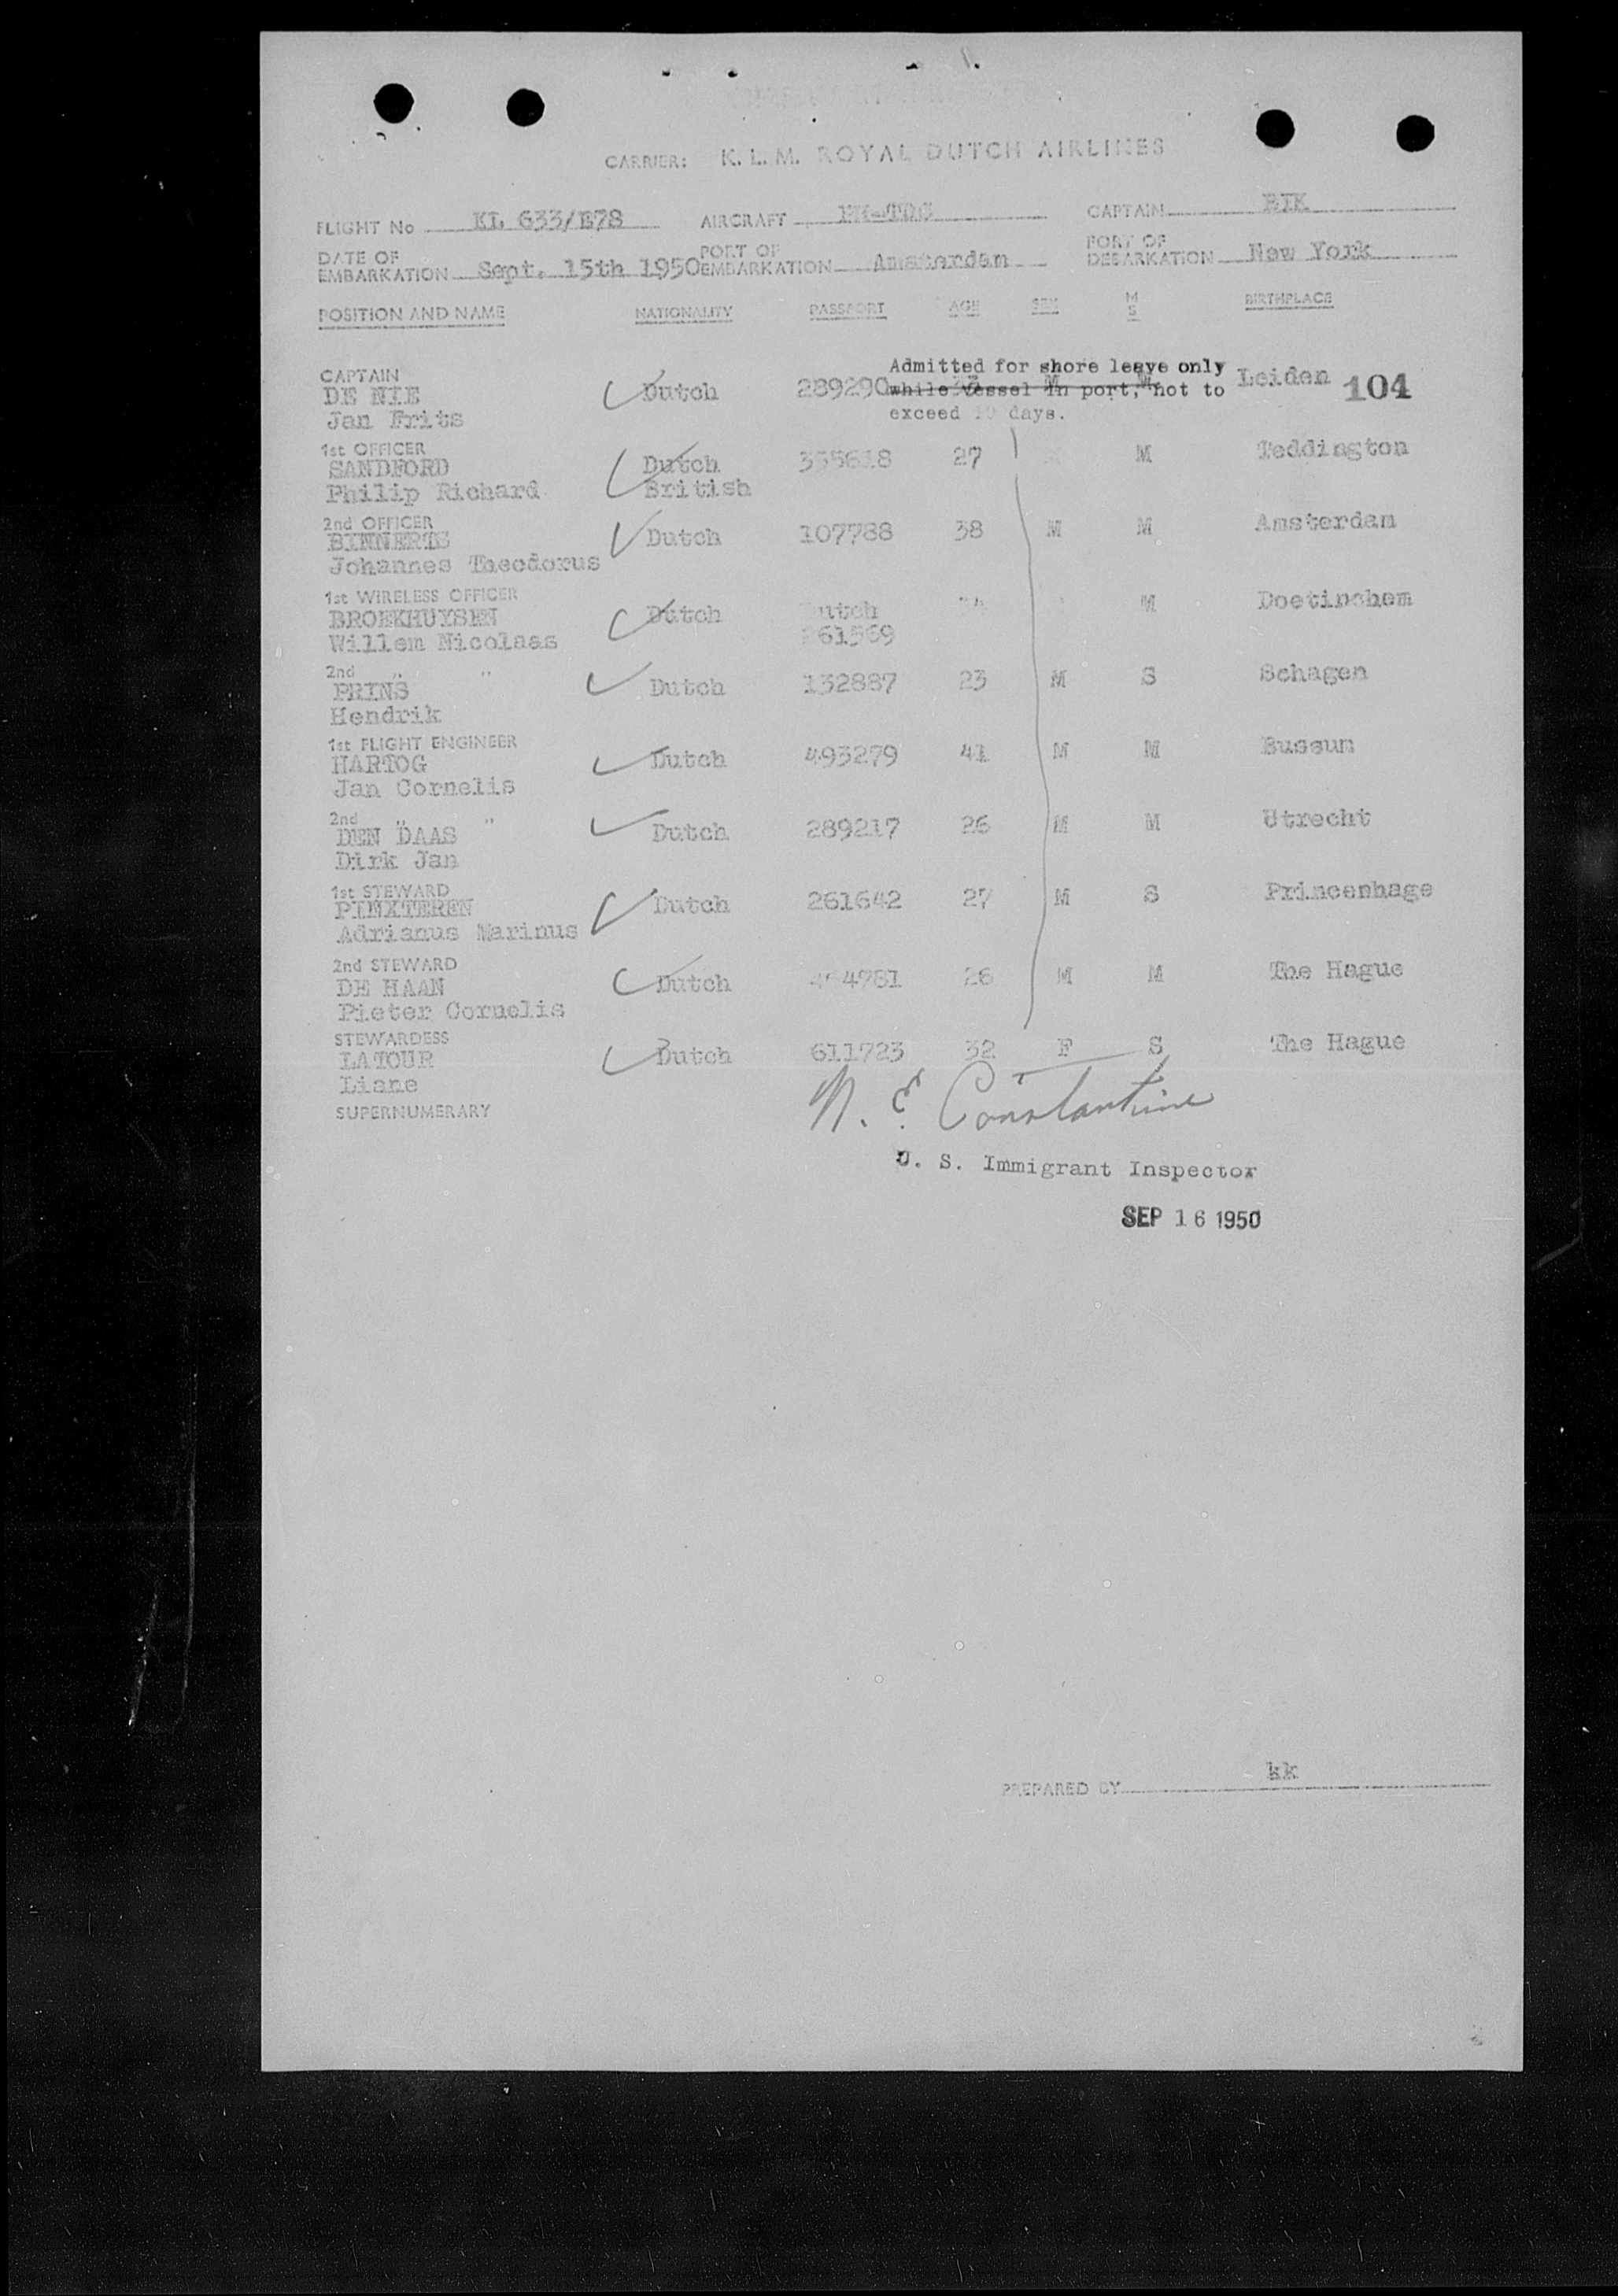 CARRIER: K. L. M. ROYAL DUTCH AIRLINES
FLIGHT No KL 633/E78 AIRCRAFT PH-TDC CAPTAIN RIK
DATE OF EMBARKATION Sept. 15th 1950 PORT OF EMBARKATION Amsterdam PORT OF DEBARKATION New York
POSITION AND NAME NATIONALITY PASSPORT AGE SEX M S BIRTHPLACE
Admitted for shore leave only
while vessel in port, not to
exceed days.
CAPTAIN
DE NIE Dutch 289290 M M Leiden 104
Jan Frits
1st OFFICER
SANDFORD Dutch 27 M Teddington
Philip Richard British
2nd OFFICER
BINNERTS Dutch 107788 38 M M Amsterdam
Johannes Theodorus
1st WIRELESS OFFICER
BROEKHUYSEN Dutch Dutch M Doetinchem
Willem Nicolaas 61569
2nd " "
PRINS Dutch 132887 23 M S Schagen
Hendrik
1st FLIGHT ENGINEER
HARTOG Dutch 493279 41 M M Bussum
Jan Cornelis
2nd " "
DEN DAAS Dutch 289217 26 M M Utrecht
Dirk Jan
1st STEWARD
PINXTEREN Dutch 261642 27 M S Princenhage
Adrianus Marinus
2nd STEWARD
DE HAAN Dutch 4781 26 M M The Hague
Pieter Cornelis
STEWARDESS
LATOUR Dutch 611723 32 F S The Hague
Liane
SUPERNUMERARY
N. E. Constantine
U. S. Immigrant Inspector
SEP 16 1950
PREPARED BY kk